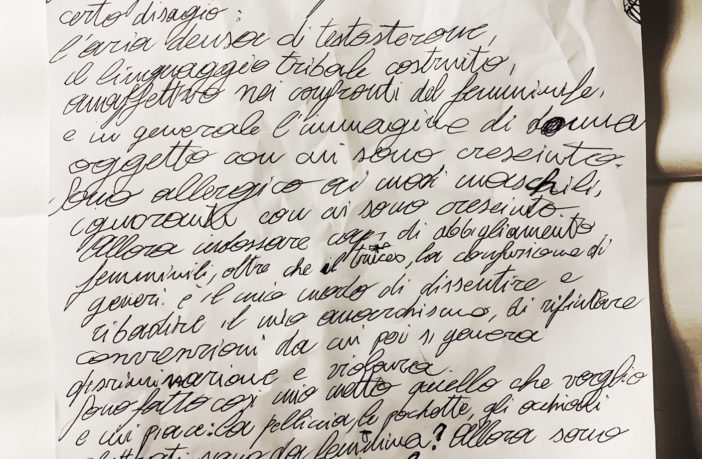 certo disagio:
l'aria densa di testosterone,
il linguaggio tribale costruito,
anaffettivo nei confronti del femminile,
e in generale l'immagine di donna
oggetto con cui sono cresciuto.
Sono allergico ai modi maschili,
ignoranti con cui sono cresciuto.
Allora indossare capi di abbigliamento
femminili, oltre che il trucco, la confusione di
generi è il mio modo di dissentire e
ribadire il mio anarchismo, di rifiutare
convenzioni da cui poi si genera
discriminazione e violenza.
Sono fatto così mi metto quello che voglio
e mi piace: la pelliccia, la pochette, gli occhiali
sono da femmina? Allora sono